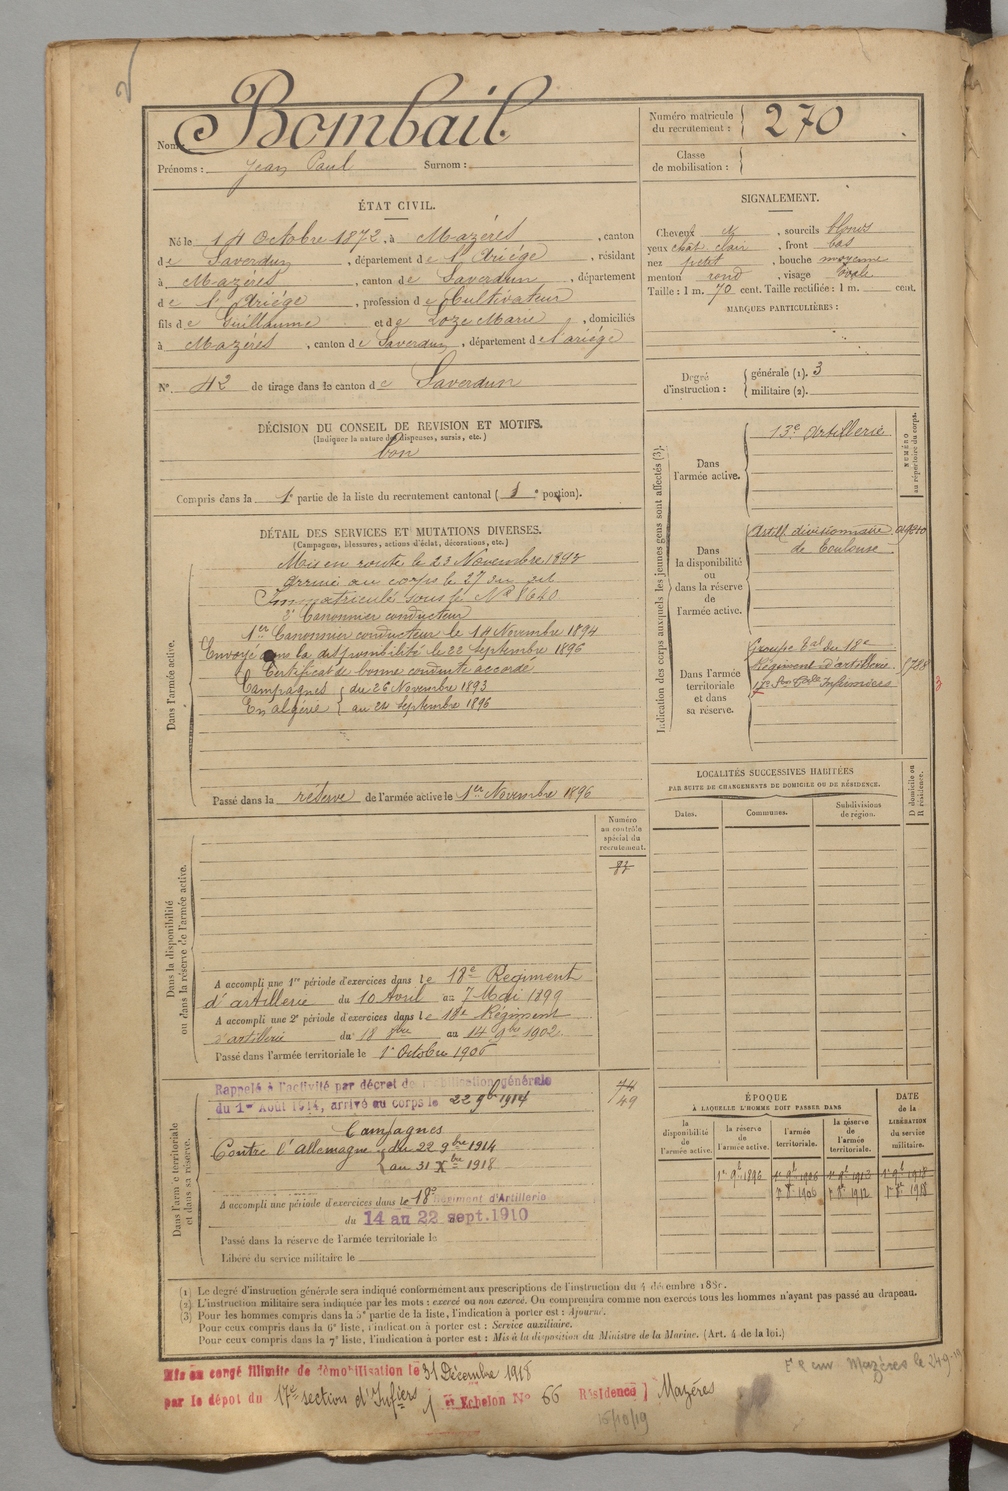 Nom : Bombail
Prénoms : Jean Paul Surnom :
Numéro matricule du recrutement : 270
Classe de mobilisation :
ÉTAT CIVIL.
Né le 14 Octobre 1872, à Mazères, canton
de Saverdun, département de l'Ariége, résidant
à Mazères, canton de Saverdun, département
de l'Ariége, profession de Cultivateur
fils de Guillaume et de Loze Marie, domiciliés
à Mazères, canton de Saverdun, département de l'ariége
N° 42 de tirage dans le canton de Saverdun
SIGNALEMENT.
Cheveux , sourcils
yeux chat. clair, front bas
nez petit, bouche moyenne
menton rond, visage ovale
Taille : 1 m. 70 cent. Taille rectifiée : 1 m. cent.
MARQUES PARTICULIÈRES :
Degré d'instruction : générale (1). 3
militaire (2).
DÉCISION DU CONSEIL DE REVISION ET MOTIFS.
(Indiquer la nature des dispenses, sursis, etc.)
bon
Compris dans la 1e partie de la liste du recrutement cantonal ( e portion).
DÉTAIL DES SERVICES ET MUTATIONS DIVERSES.
(Campagnes, blessures, actions d'éclat, décorations, etc.)
Dans l'armée active.
Mis en route le 23 Novembre 1893
Arrivé au corps le 27 du dit
Immatriculé sous le N° 8640
2e Canonnier conducteur
1er Canonnier conducteur le 14 Novembre 1894
Envoyé dans la disponibilité le 22 Septembre 1896
Certificat de bonne conduite accordé
Campagnes { du 26 Novembre 1893
En algérie { au 24 Septembre 1896
Passé dans la réserve de l'armée active le 1er Novembre 1896
Indication des corps auxquels les jeunes gens sont affectés (3).
NUMÉRO au répertoire du corps.
Dans l'armée active.
13e Artillerie
Dans la disponibilité ou dans la réserve de l'armée active.
Artill. divisionnaire
de Toulouse
Dans l'armée territoriale et dans sa réserve.
Groupe tal du 18e
Régiment d'artillerie
17e Son Infirmiers
3
LOCALITÉS SUCCESSIVES HABITÉES
PAR SUITE DE CHANGEMENTS DE DOMICILE OU DE RÉSIDENCE.
Dates. Communes. Subdivisions de région. D domicile ou R résidence.
Numéro au contrôle spécial du recrutement.
Dans la disponibilité ou dans la réserve de l'armée active.
A accompli une 1re période d'exercices dans le 18e Regiment
d'artillerie du 10 Avril au 7 Mai 1899
A accompli une 2e période d'exercices dans le 18e Régiment
d'artillerie du 18 8bre au 14 9bre 1902
Passé dans l'armée territoriale le 1er Octobre 1906
Dans l'armée territoriale et dans sa réserve.
Rappelé à l'activité par décret de mobilisation générale
du 1er Août 1914, arrivé au corps le 22 9bre 1914
44
49
Campagnes
Contre l'Allemagne { du 22 9bre 1914
{ au 31 Xbre 1918
A accompli une période d'exercices dans le 18e Régiment d'Artillerie
du 14 au 22 sept. 1910
Passé dans la réserve de l'armée territoriale le
Libéré du service militaire le
ÉPOQUE
À LAQUELLE L'HOMME DOIT PASSER DANS
la disponibilité de l'armée active. la réserve de l'armée active. l'armée territoriale. la réserve de l'armée territoriale. DATE de la LIBÉRATION du service militaire.
1er 9bre 1896 1er 9bre 1906 1er 9bre 1912 1er 9bre 1918
1er 8bre 1906 1er 8bre 1912 1er 8bre 1918
(1) Le degré d'instruction générale sera indiqué conformément aux prescriptions de l'instruction du 4 décembre 1889.
(2) L'instruction militaire sera indiquée par les mots : exercé ou non exercé. On comprendra comme non exercés tous les hommes n'ayant pas passé au drapeau.
(3) Pour les hommes compris dans la 5e partie de la liste, l'indication à porter est : Ajourné.
Pour ceux compris dans la 6e liste, l'indication à porter est : Service auxiliaire.
Pour ceux compris dans la 7e liste, l'indication à porter est : Mis à la disposition du Ministre de la Marine. (Art. 4 de la loi.)
Mis en congé illimité de démobilisation le 31 Décembre 1918
par le dépot du 17e section d'Infiers 1 et Echelon N° 66 Résidence } Mazères
16/10/19